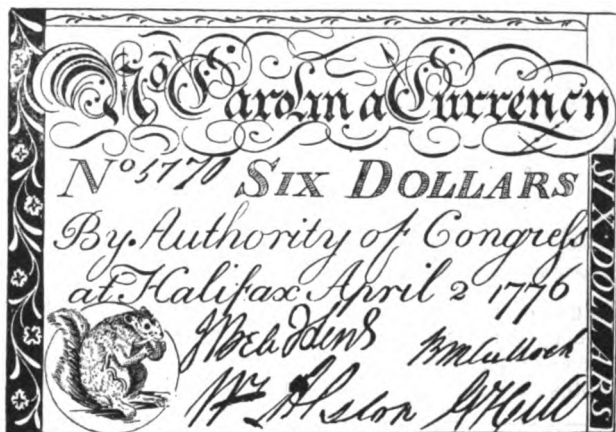 No Carolina Currency
No 5770 SIX DOLLARS
By Authority of Congreſs
at Halifax April 2 1776
Wm Alston
SIX DOLLARS